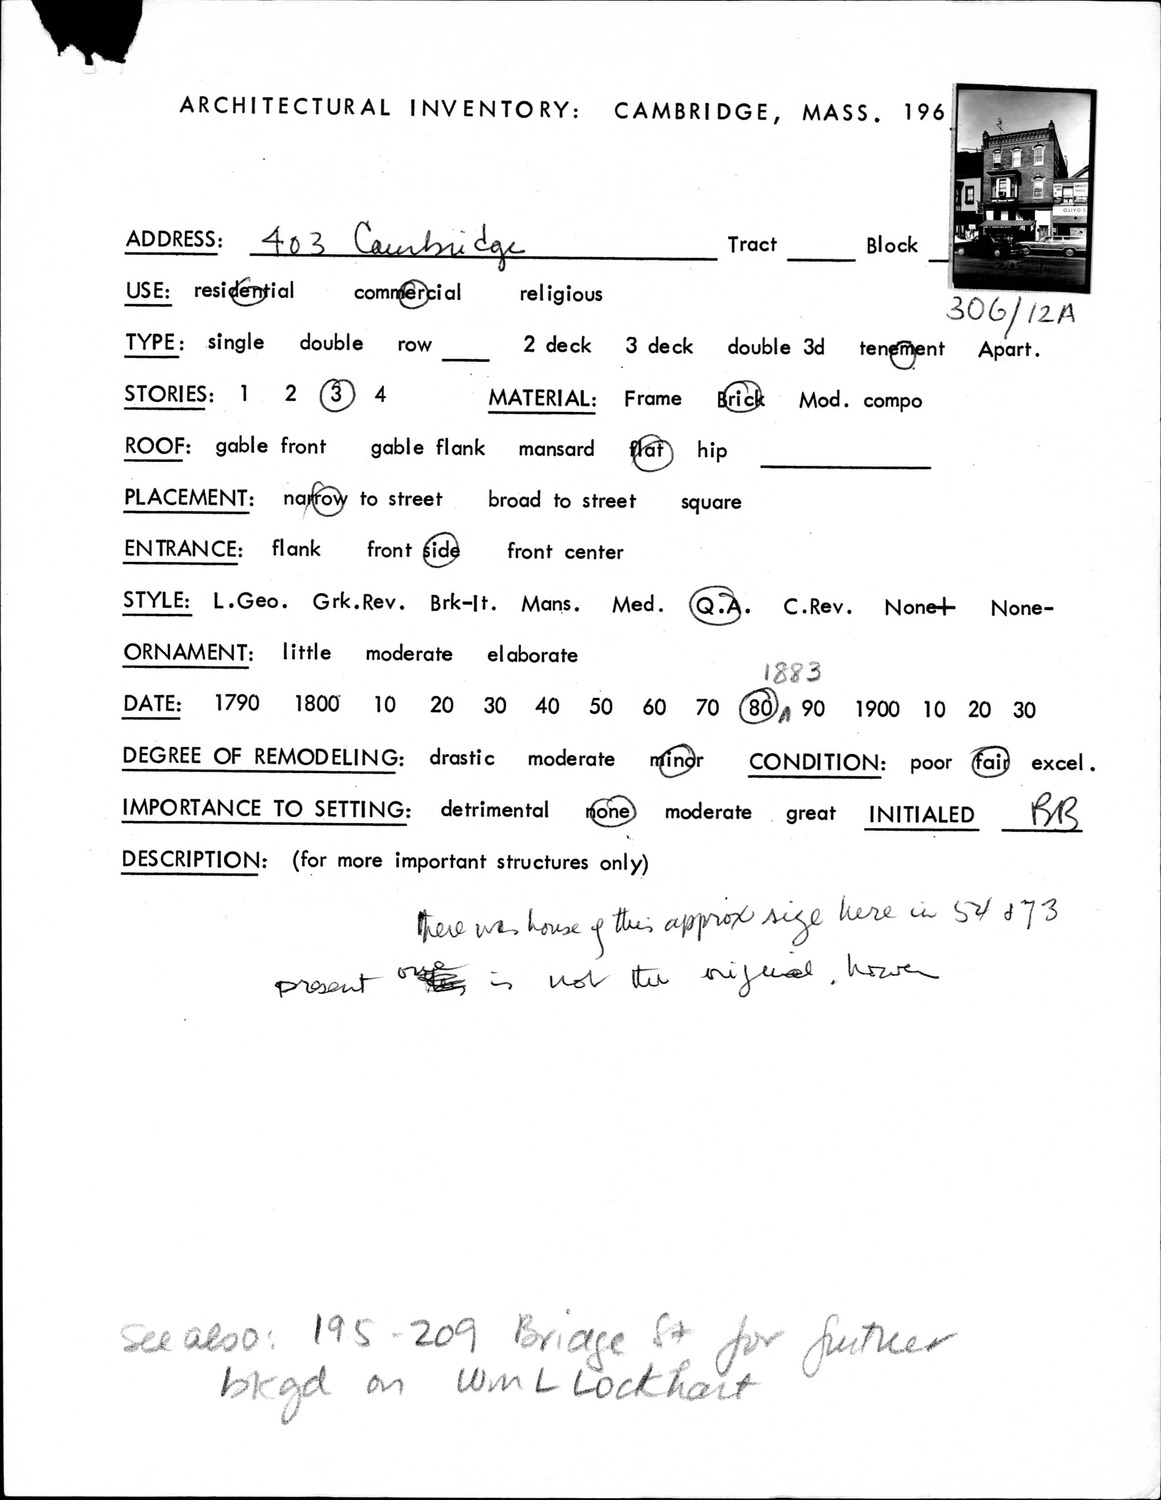 ARCHITECTURAL INVENTORY: CAMBRIDGE, MASS. 196
ADDRESS: 403 Cambridge Tract Block
USE: residential commercial religious
306/12A
TYPE: single double row 2 deck 3 deck double 3d tenement Apart.
STORIES: 1 2 3 4 MATERIAL: Frame Brick Mod. compo
ROOF: gable front gable flank mansard flat hip
PLACEMENT: narrow to street broad to street square
ENTRANCE: flank front side front center
STYLE: L.Geo. Grk.Rev. Brk-It. Mans. Med. Q.A. C.Rev. None+ None-
ORNAMENT: little moderate elaborate
1883
DATE: 1790 1800 10 20 30 40 50 60 70 80 90 1900 10 20 30
DEGREE OF REMODELING: drastic moderate minor CONDITION: poor fair excel.
IMPORTANCE TO SETTING: detrimental none moderate great INITIALED BB
DESCRIPTION: (for more important structures only)
there was house of this approx size here in 54 & 73
present one is not the original, however
See also: 195-209 Bridge St for further
bkgd on Wm L Lockhart